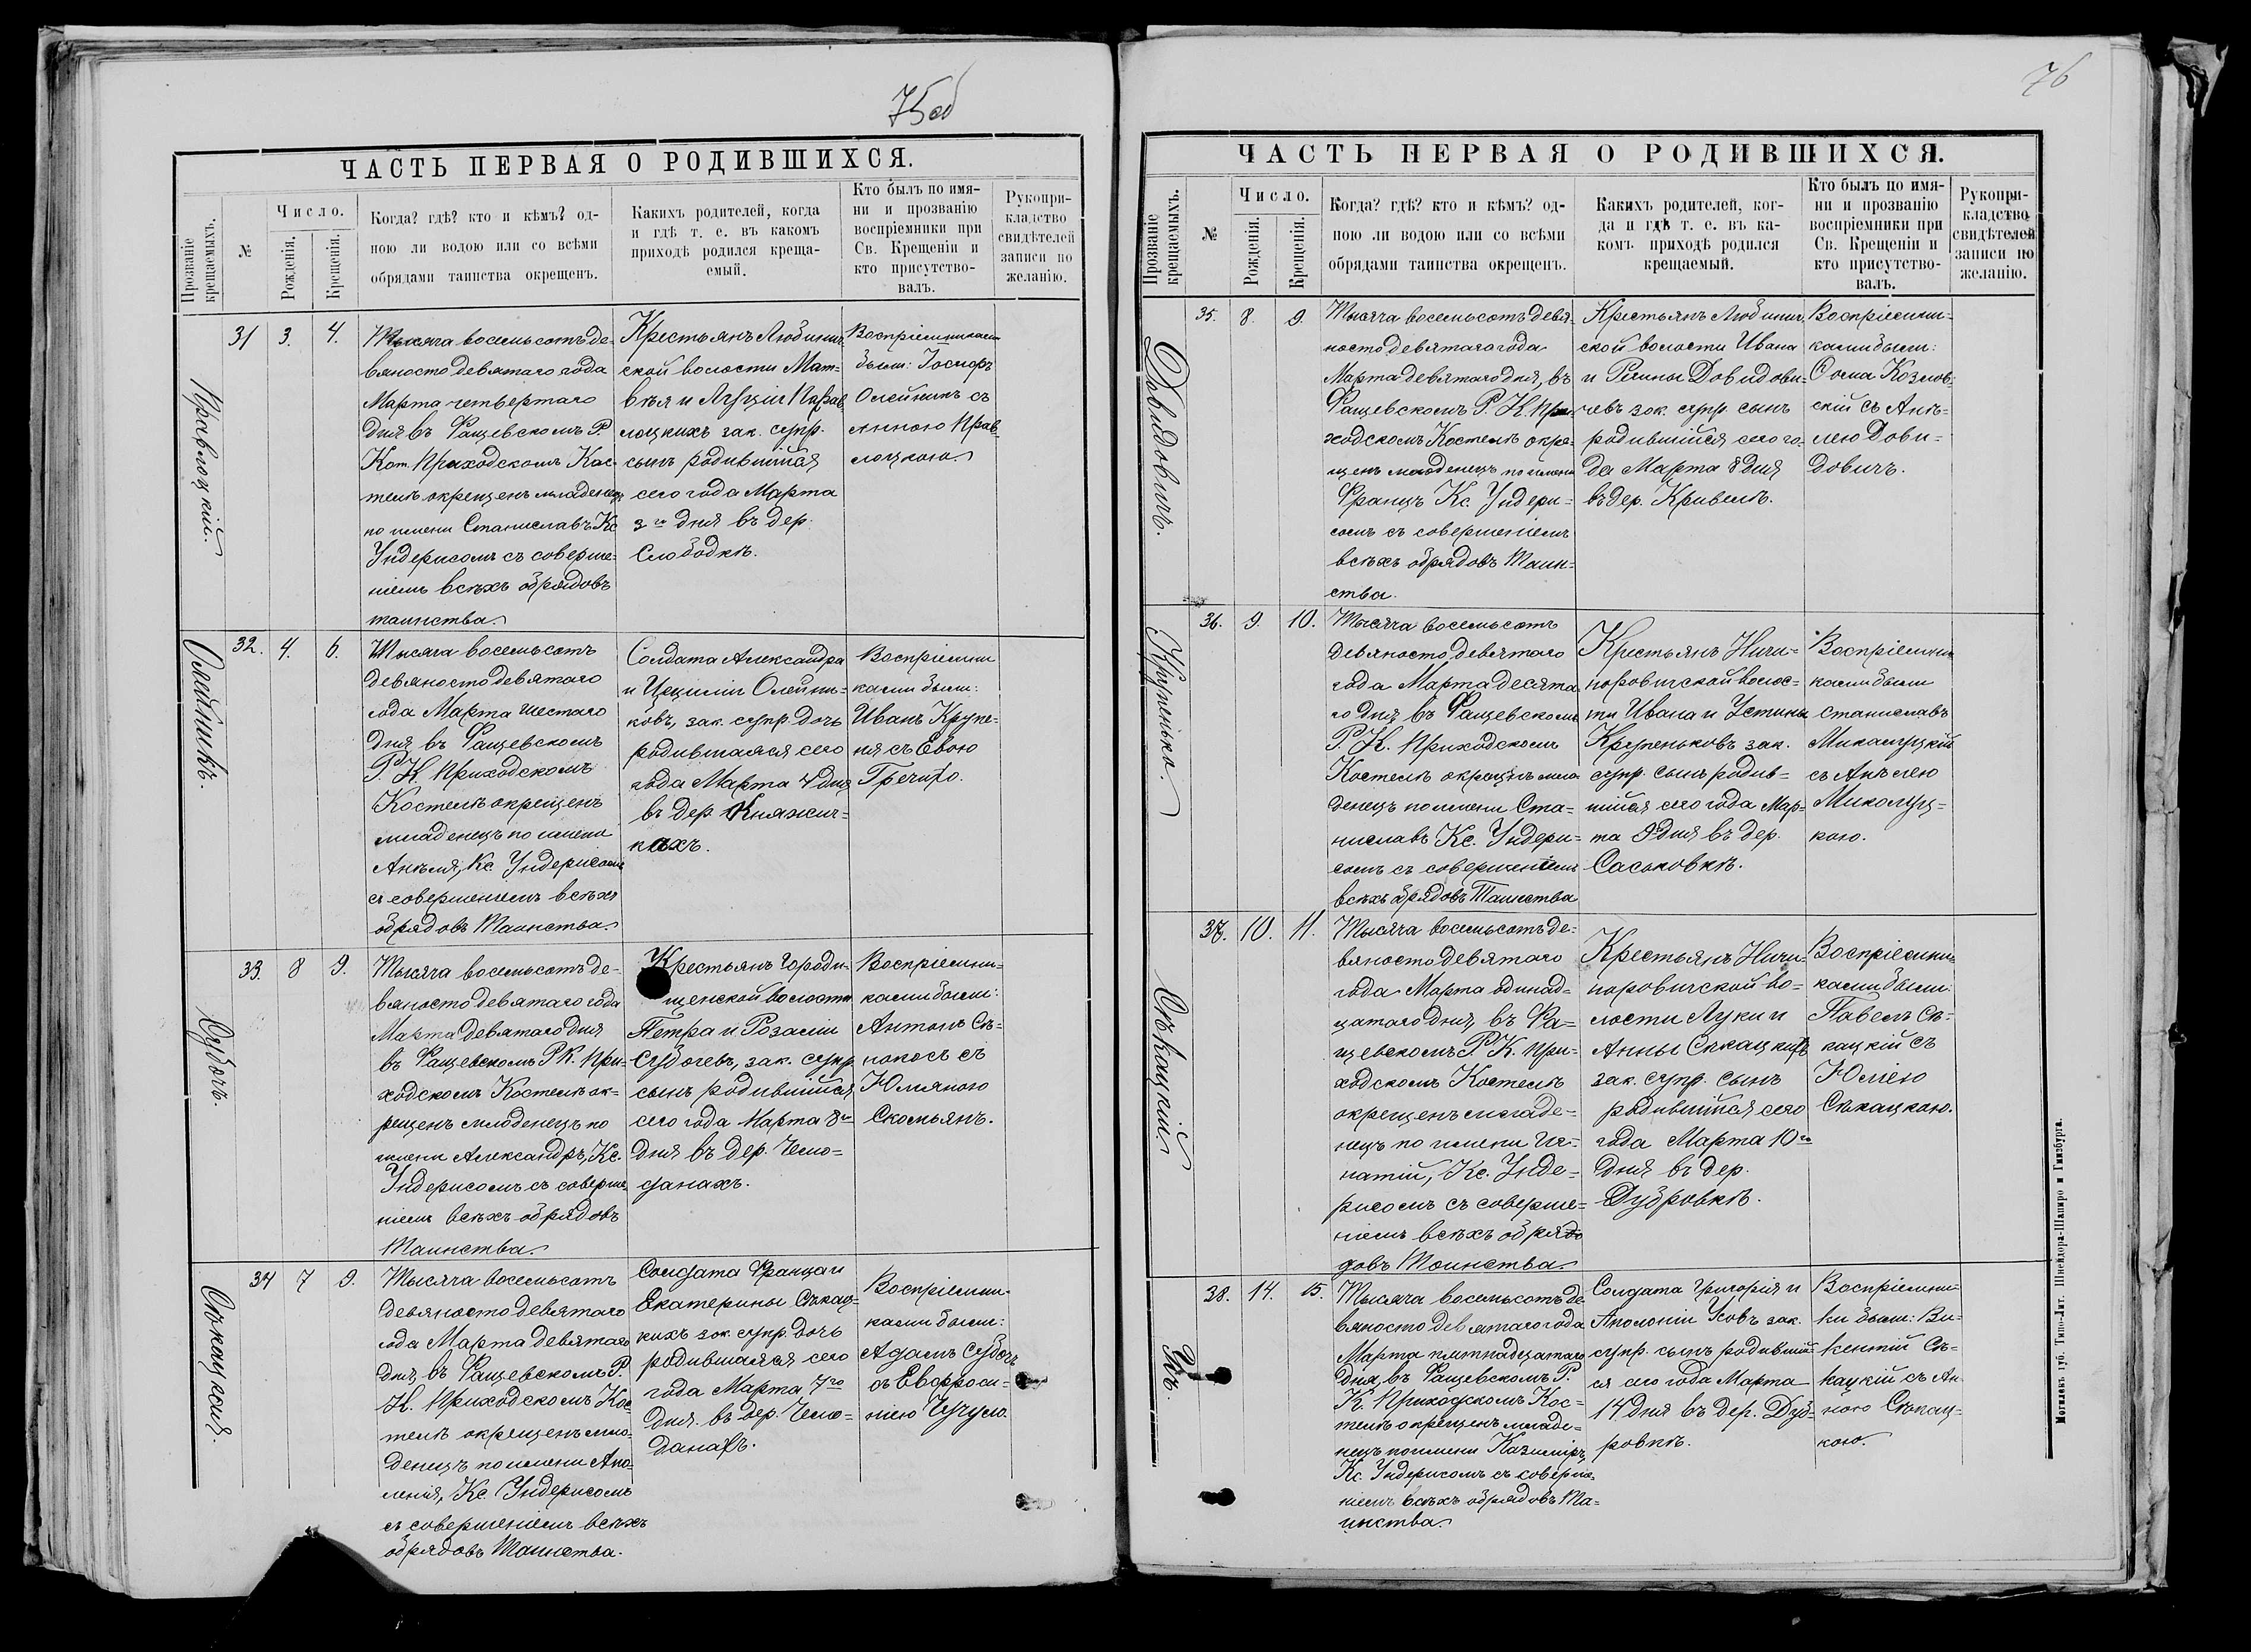 75об
ЧАСТЬ ПЕРВАЯ О РОДИВШИХСЯ.
Прозваніе крещаемыхъ.
№
Число.
Рожденія.
Крещенія.
Когда? гдѣ? кто и кѣмъ? од-
ною ли водою или со всѣми
обрядами таинства окрещенъ.
Какихъ родителей, когда
и гдѣ т. е. въ какомъ
приходѣ родился креща-
емый.
Кто былъ по имя-
ни и прозванію
воспріемники при
Св. Крещеніи и
кто присутство-
валъ.
Рукопри-
кладство
свидѣтелей
записи по
желанію.
Правлоцкій.
31 3. 4.
Тысяча восемьсотъ де-
вяносто девятаго года
Марта четвертаго
дня въ Фащевскомъ Р.
Кат. Приходскомъ Кос-
телѣ окрещенъ младенецъ
по имени Станиславъ Кс
Ундерисомъ съ соверше-
ніемъ всѣхъ обрядовъ
таинства.
Крестьянъ Любинич.
ской волости Мат-
вѣя и Луціи Прав
лоцкихъ зак. супр.
сынъ родившійся
сего года Марта
3го дня въ дер.
Слободкѣ.
Воспріемниками
были: Іосифъ
Олейникъ съ
Анною Прав-
лоцкою.
Олейникъ.
32. 4. 6.
Тысяча восемьсотъ
девяносто девятаго
года Марта шестаго
дня въ Фащевскомъ
Р. К. Приходскомъ
Костелѣ окрещенъ
младенецъ по имени
Анѣля, Кс. Ундерисомъ
съ совершеніемъ всѣхъ
обрядовъ Таинства.
Солдата Александра
и Цециліи Олейни-
ковъ, зак. супр. дочь
родившаяся сего
года Марта 4 дня
въ дер. Княжи-
цахъ.
Воспріемни
ками были:
Иванъ Крупе-
ня съ Евою
Гречихо.
Субочъ.
33. 8 9.
Тысяча восемьсотъ де-
вяносто девятаго года
Марта девятаго дня
въ Фащевскомъ Р К. При-
ходскомъ Костелѣ ок-
рещенъ младенецъ по
имени Александръ, Кс.
Ундерисомъ съ соверше-
ніемъ всѣхъ обрядовъ
Таинства.
Крестьянъ Городи-
щенской волости
Петра и Розаліи
Субочевъ, зак. супр.
сынъ родившійся
сего года Марта 8го
дня въ дер. Чемо-
данахъ.
Воспріемни-
ками были:
Антонъ Сѣ-
нокосъ съ
Юліяною
Скомьянъ.
Сѣкацкая.
34 7 9.
Тысяча восемьсотъ
девяносто девятаго
года Марта девятаго
дня, въ Фащевскомъ Р.
К. Приходскомъ Кос-
телѣ окрещенъ мла-
денецъ по имени Апо-
лонія, Кс. Ундерисомъ
съ совершеніемъ всѣхъ
обрядовъ Таинства.
Солдата Франца и
Екатерины Сѣкац-
кихъ зак. супр. дочь
родившаяся сего
года Марта 7го
дня въ дер. Чемо-
данахъ.
Воспріемни-
ками были:
Адамъ Субочъ
съ Евфроси-
ніею Чугуло.
76
ЧАСТЬ ПЕРВАЯ О РОДИВШИХСЯ.
Прозваніе крещаемыхъ.
№
Число.
Рожденія.
Крещенія.
Когда? гдѣ? кто и кѣмъ? од-
ною ли водою или со всѣми
обрядами таинства окрещенъ.
Какихъ родителей, ког-
да и гдѣ т. е. въ ка-
комъ приходѣ родился
крещаемый.
Кто былъ по имя-
ни и прозванію
воспріемники при
Св. Крещеніи и
кто присутство-
валъ.
Рукопри-
кладство
свидѣтелей
записи по
желанію.
Довидовичъ.
35. 8. 9.
Тысяча восемьсотъ девя-
носто девятаго года
Марта девятаго дня, въ
Фащевскомъ Р. К. При-
ходскомъ Костелѣ окре-
щенъ младенецъ по имени
Францъ Кс. Ундери-
сомъ съ совершеніемъ
всѣхъ обрядовъ Таин-
ства.
Крестьянъ Любинич.
ской волости Ивана
и Регины Довидови-
чевъ зак. супр. сынъ
родившійся сего го-
да Марта 8 дня
въ дер. Кривелѣ.
Воспріемни-
ками были:
Ѳома Козлов-
скій съ Анѣ-
лею Дови-
довичъ.
Крупенько.
36. 9. 10.
Тысяча восемьсотъ
девяносто девятаго
года Марта десята-
го дня въ Фащевскомъ
Р. К. Приходскомъ
Костелѣ окрещенъ мла-
денецъ по имени Ста-
ниславъ Кс. Ундери-
сомъ съ совершеніемъ
всѣхъ обрядовъ Таинства
Крестьянъ Ничи-
поровичской волос-
ти Ивана и Устины
Крупеньковъ зак.
супр. сынъ родив-
шійся сего года Мар-
та 9 дня въ дер.
Саськовкѣ.
Воспріемни
ками были
Станиславъ
Миколуцкій
съ Анѣлею
Миколуц-
кою.
Сѣкацкій.
37. 10. 11.
Тысяча восемьсотъ де-
вяносто девятаго
года Марта одинад-
цатаго дня, въ Фа-
щевскомъ Р. К. При-
ходскомъ Костелѣ
окрещенъ младе-
нецъ по имени Иг-
натій, Кс. Унде-
рисомъ съ соверше-
ніемъ всѣхъ обря
довъ Таинства.
Крестьянъ Ничи-
поровичской во-
лости Луки и
Анны Сѣкацкихъ
зак. супр. сынъ
родившійся сего
года Марта 10го
дня въ дер.
Дубровкѣ.
Воспріемни-
ками были:
Павелъ Сѣ-
кацкій съ
Юліею
Сѣкацкою.
Усъ.
38. 14. 15.
Тысяча восемьсотъ де
вяносто девятаго года
Марта пятнадцатаго
дня, въ Фащевскомъ Р.
К. Приходскомъ Кос-
телѣ окрещенъ младе-
нецъ по имени Казиміръ,
Кс. Ундерисомъ съ соверше-
ніемъ всѣхъ обрядовъ Та-
инства.
Солдата Григорія и
Аполоніи Усовъ зак.
супр. сынъ родившій
ся сего года Марта
14 дня въ дер. Дуб-
ровкѣ.
Воспріемни-
ки были: Ви-
кентій Сѣ-
кацкій съ Ан-
ною Сѣкац-
кою.
Могилевъ губ. Типо-Лит. Шнейдора-Шапиро и Гинзбурга.